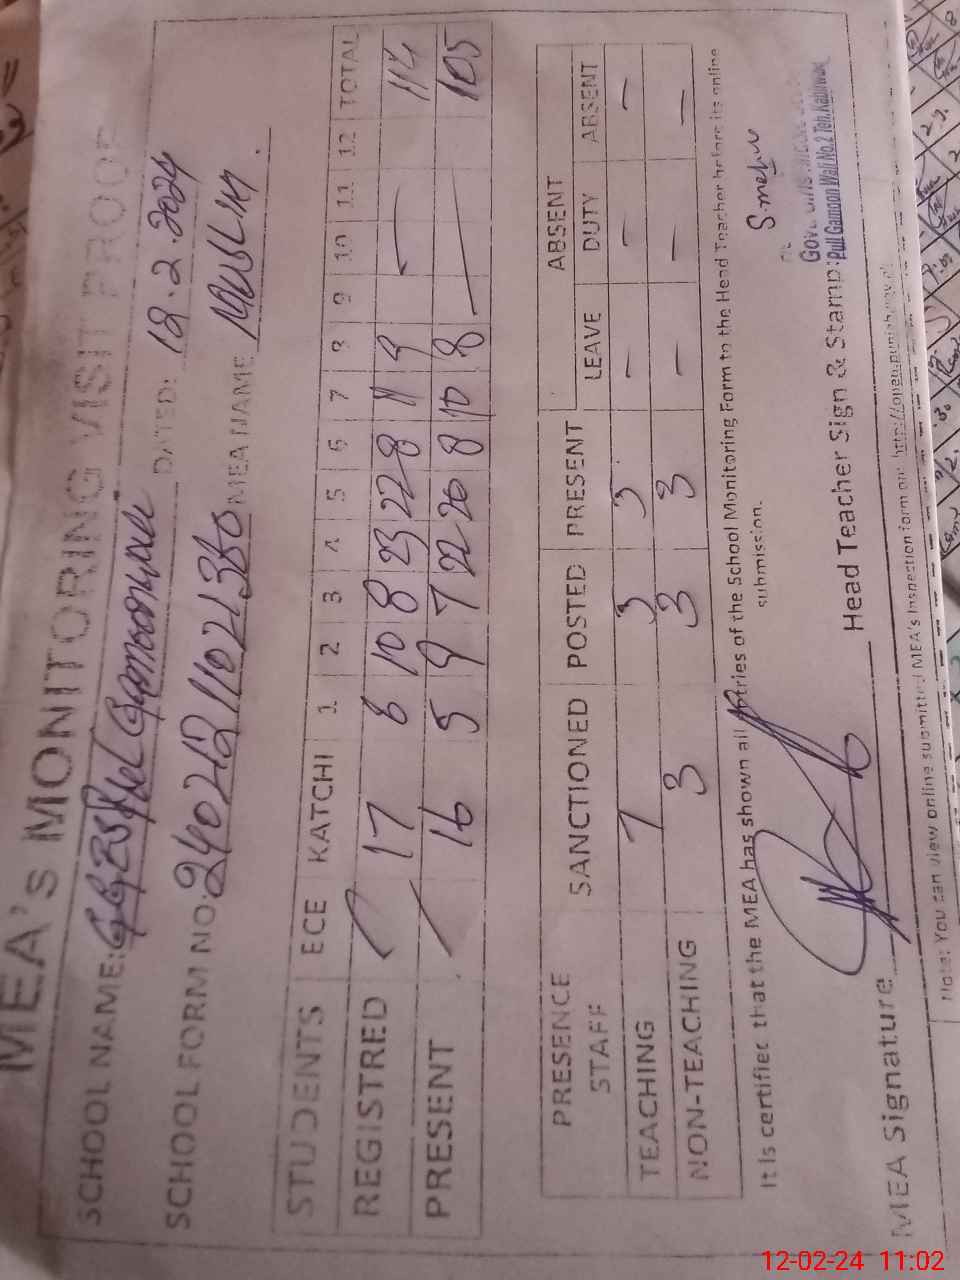 MEA's MONITORING VISIT PROOF
SCHOOL NAME: DATED: 12.2.2024
SCHOOL FORM NO: MEA NAME
STUDENTS ECE KATCHI 1 2 3 4 5 6 7 8 9 10 11 12 TOTAL
REGISTRED 17 6 10 8 23 22 8 11 9 114
PRESENT 16 5 9 7 22 20 8 10 8 105
PRESENCE STAFF SANCTIONED POSTED PRESENT ABSENT
LEAVE DUTY ABSENT
TEACHING 7 3 3 - - -
NON-TEACHING 3 3 3 - - -
It Is certified that the MEA has shown all entries of the School Monitoring Form to the Head Teacher before its online
submission.
MEA Signature Head Teacher Sign & Stamp:
Pull Gamoon Wali No.2 Teh. Kabirwala
Note: You can view online submitted MEA's Inspection form on:
12-02-24 11:02